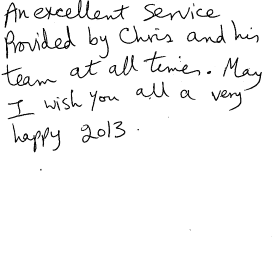 An excellent service
Provided by Chris and his
team at all times. May
I wish you all a very
happy 2013.